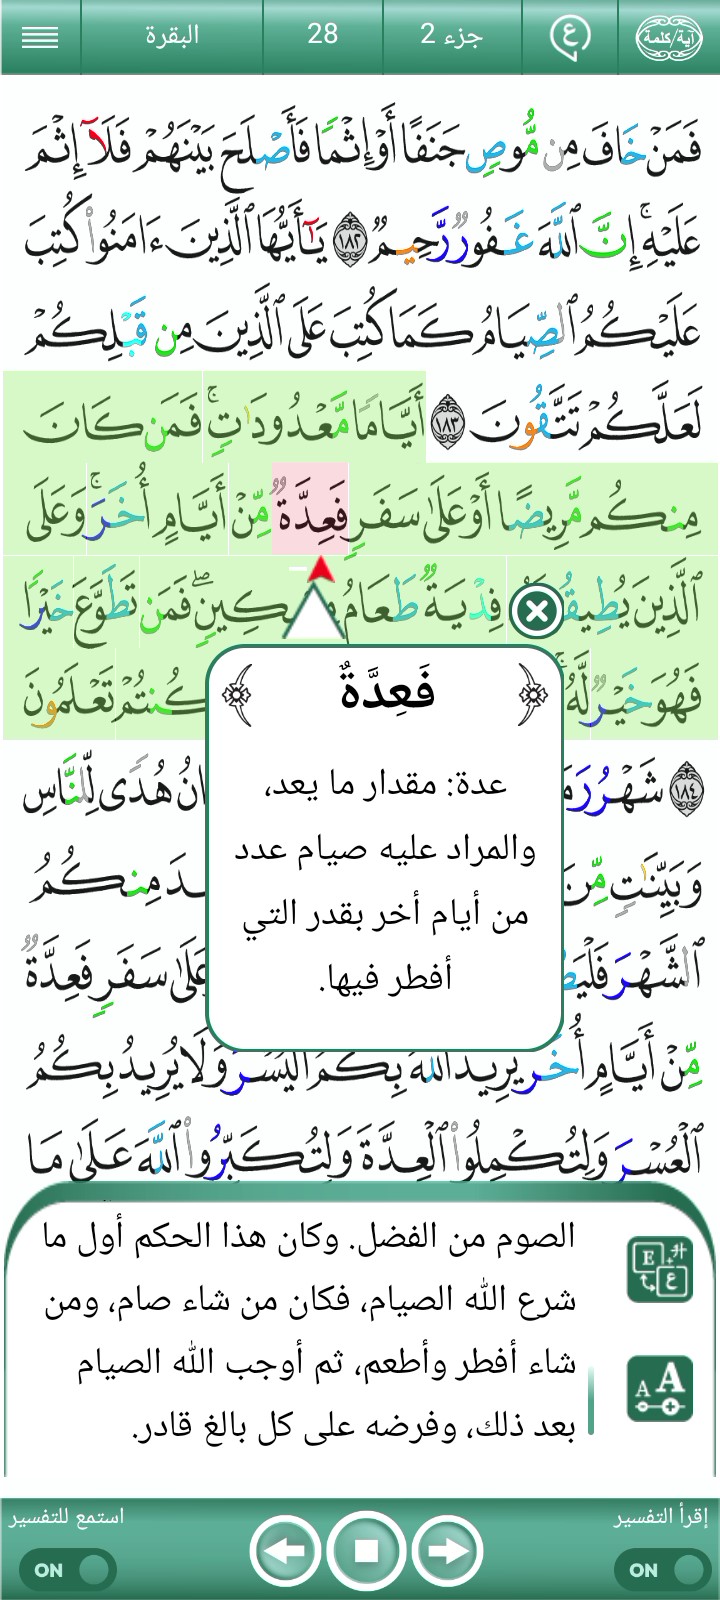 آية/كلمة ع جزء 2 28 البقرة
فَمَنْ خَافَ مِن مُّوصٍ جَنَفًا أَوْ إِثْمًا فَأَصْلَحَ بَيْنَهُمْ فَلَآ إِثْمَ
عَلَيْهِ ۚ إِنَّ ٱللَّهَ غَفُورٌ رَّحِيمٌ ١٨٢ يَٰٓأَيُّهَا ٱلَّذِينَ ءَامَنُوا۟ كُتِبَ
عَلَيْكُمُ ٱلصِّيَامُ كَمَا كُتِبَ عَلَى ٱلَّذِينَ مِن قَبْلِكُمْ
لَعَلَّكُمْ تَتَّقُونَ ١٨٣ أَيَّامًا مَّعْدُودَٰتٍ ۚ فَمَن كَانَ
مِنكُم مَّرِيضًا أَوْ عَلَىٰ سَفَرٍ فَعِدَّةٌ مِّنْ أَيَّامٍ أُخَرَ ۚ وَعَلَى
ٱلَّذِينَ يُطِيقُ فِدْيَةٌ طَعَامُ مِسْكِينٍ ۖ فَمَن تَطَوَّعَ خَيْرًا
فَهُوَ خَيْرٌ لَّهُ كُنتُمْ تَعْلَمُونَ
فَعِدَّةٌ
عدة: مقدار ما يعد،
والمراد عليه صيام عدد
من أيام أخر بقدر التي
أفطر فيها.
١٨٤ شَهْرُ رَمَ انُ هُدًى لِّلنَّاسِ
وَبَيِّنَٰتٍ مِّنَ دَ مِنكُمُ
ٱلشَّهْرَ فَلْيَصُ عَلَىٰ سَفَرٍ فَعِدَّةٌ
مِّنْ أَيَّامٍ أُخَرَ يُرِيدُ ٱللَّهُ بِكُمُ ٱلْيُسْرَ وَلَا يُرِيدُ بِكُمُ
ٱلْعُسْرَ وَلِتُكْمِلُوا۟ ٱلْعِدَّةَ وَلِتُكَبِّرُوا۟ ٱللَّهَ عَلَىٰ مَا
الصوم من الفضل. وكان هذا الحكم أول ما
شرع الله الصيام، فكان من شاء صام، ومن
شاء أفطر وأطعم، ثم أوجب الله الصيام
بعد ذلك، وفرضه على كل بالغ قادر.
E ع
A A
إقرأ التفسير استمع للتفسير
ON ON